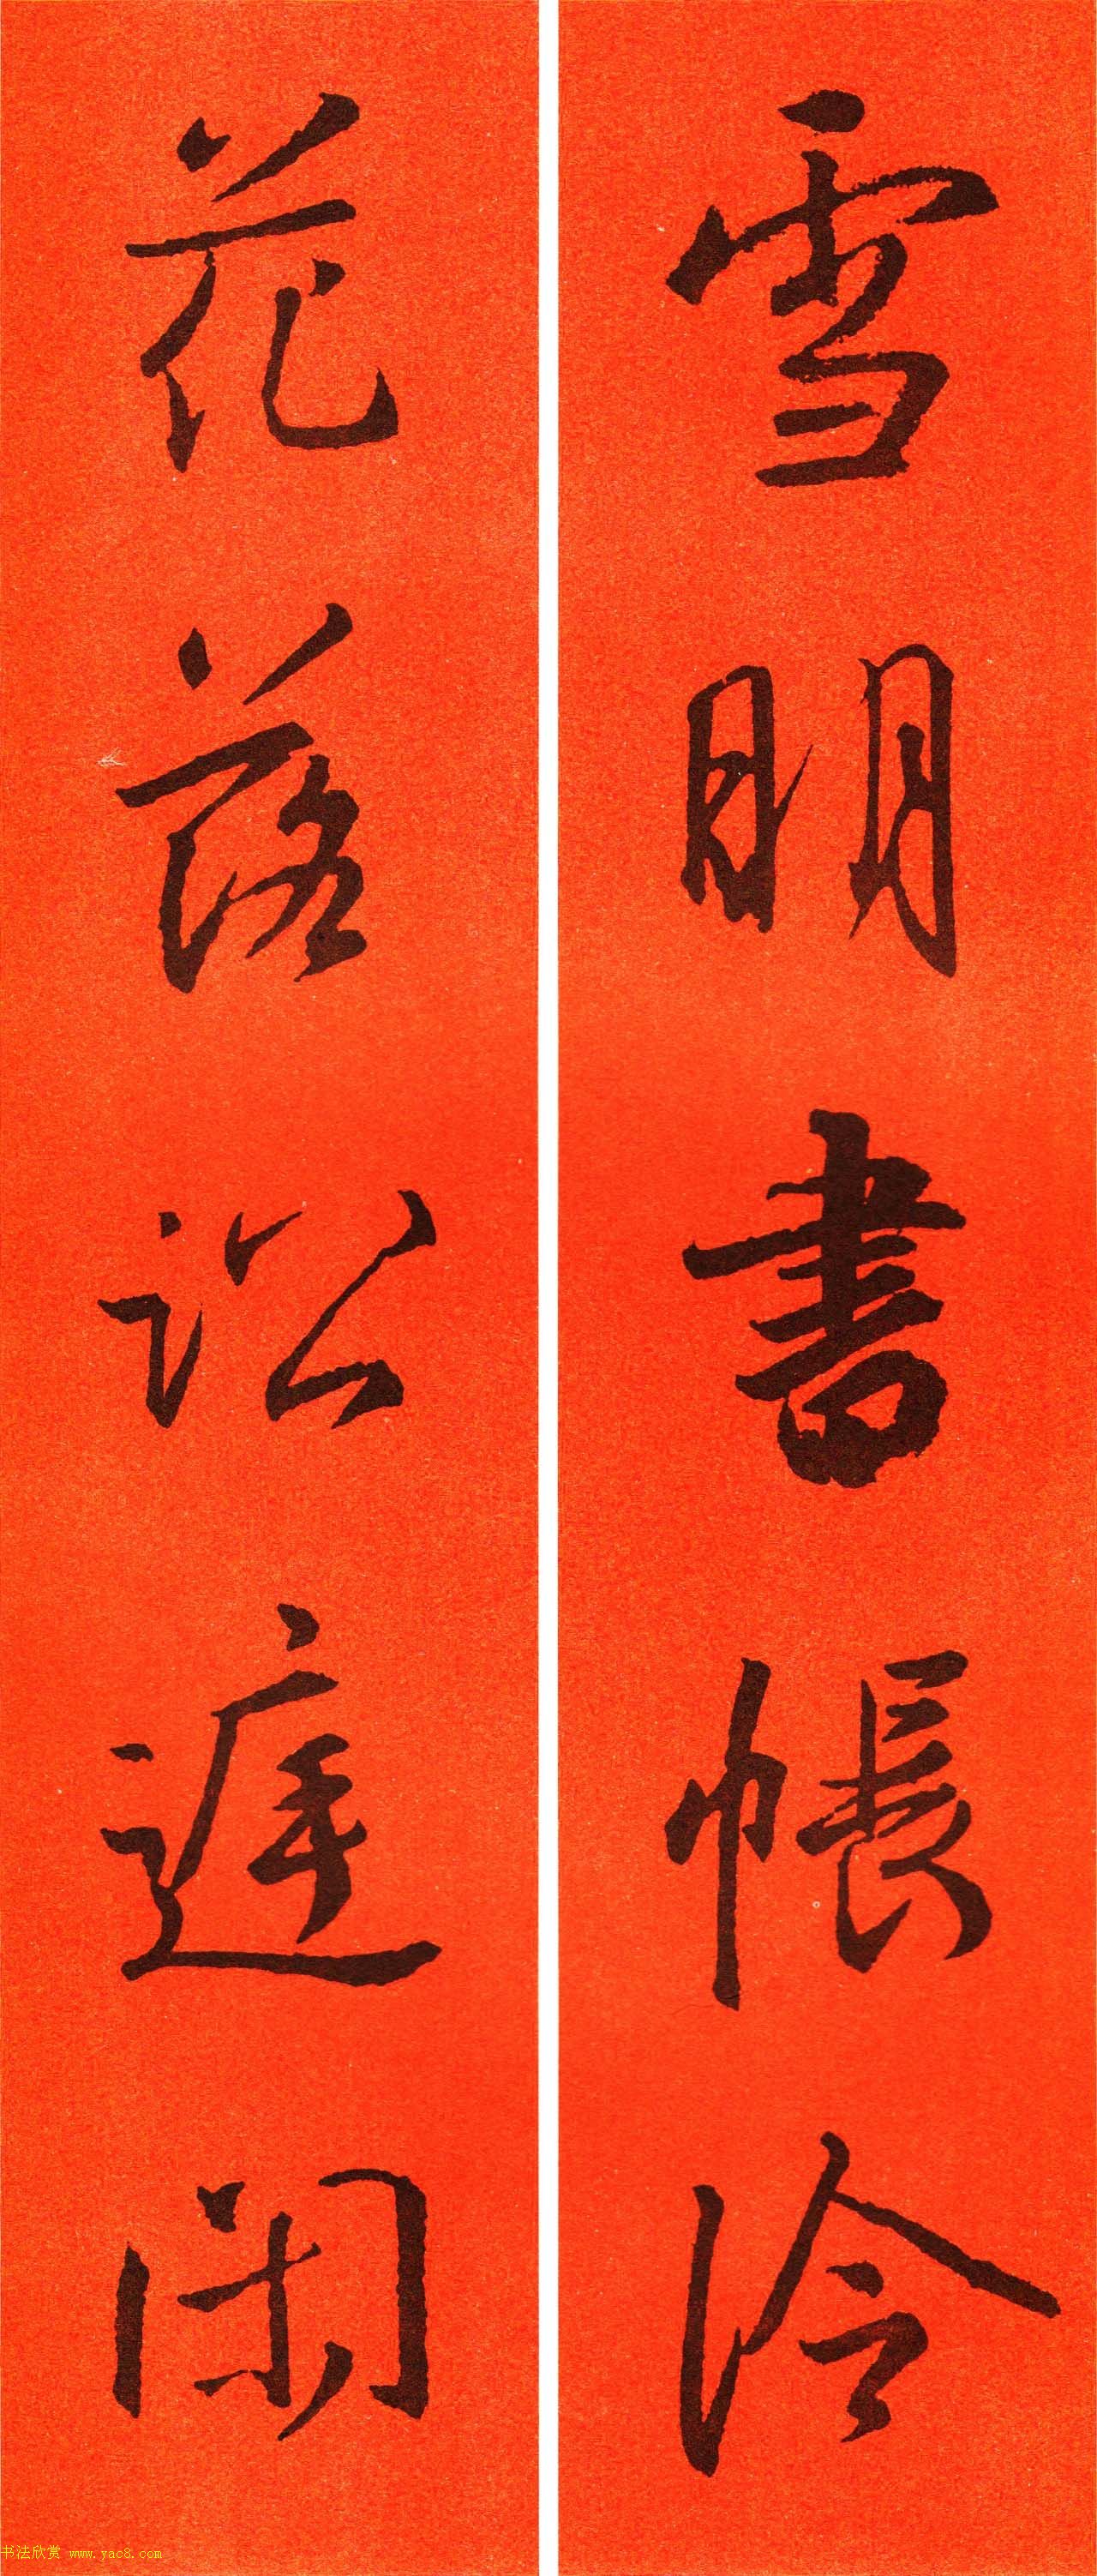 雪明書帳冷
花落訟庭閑
书法欣赏 www.yac8.com